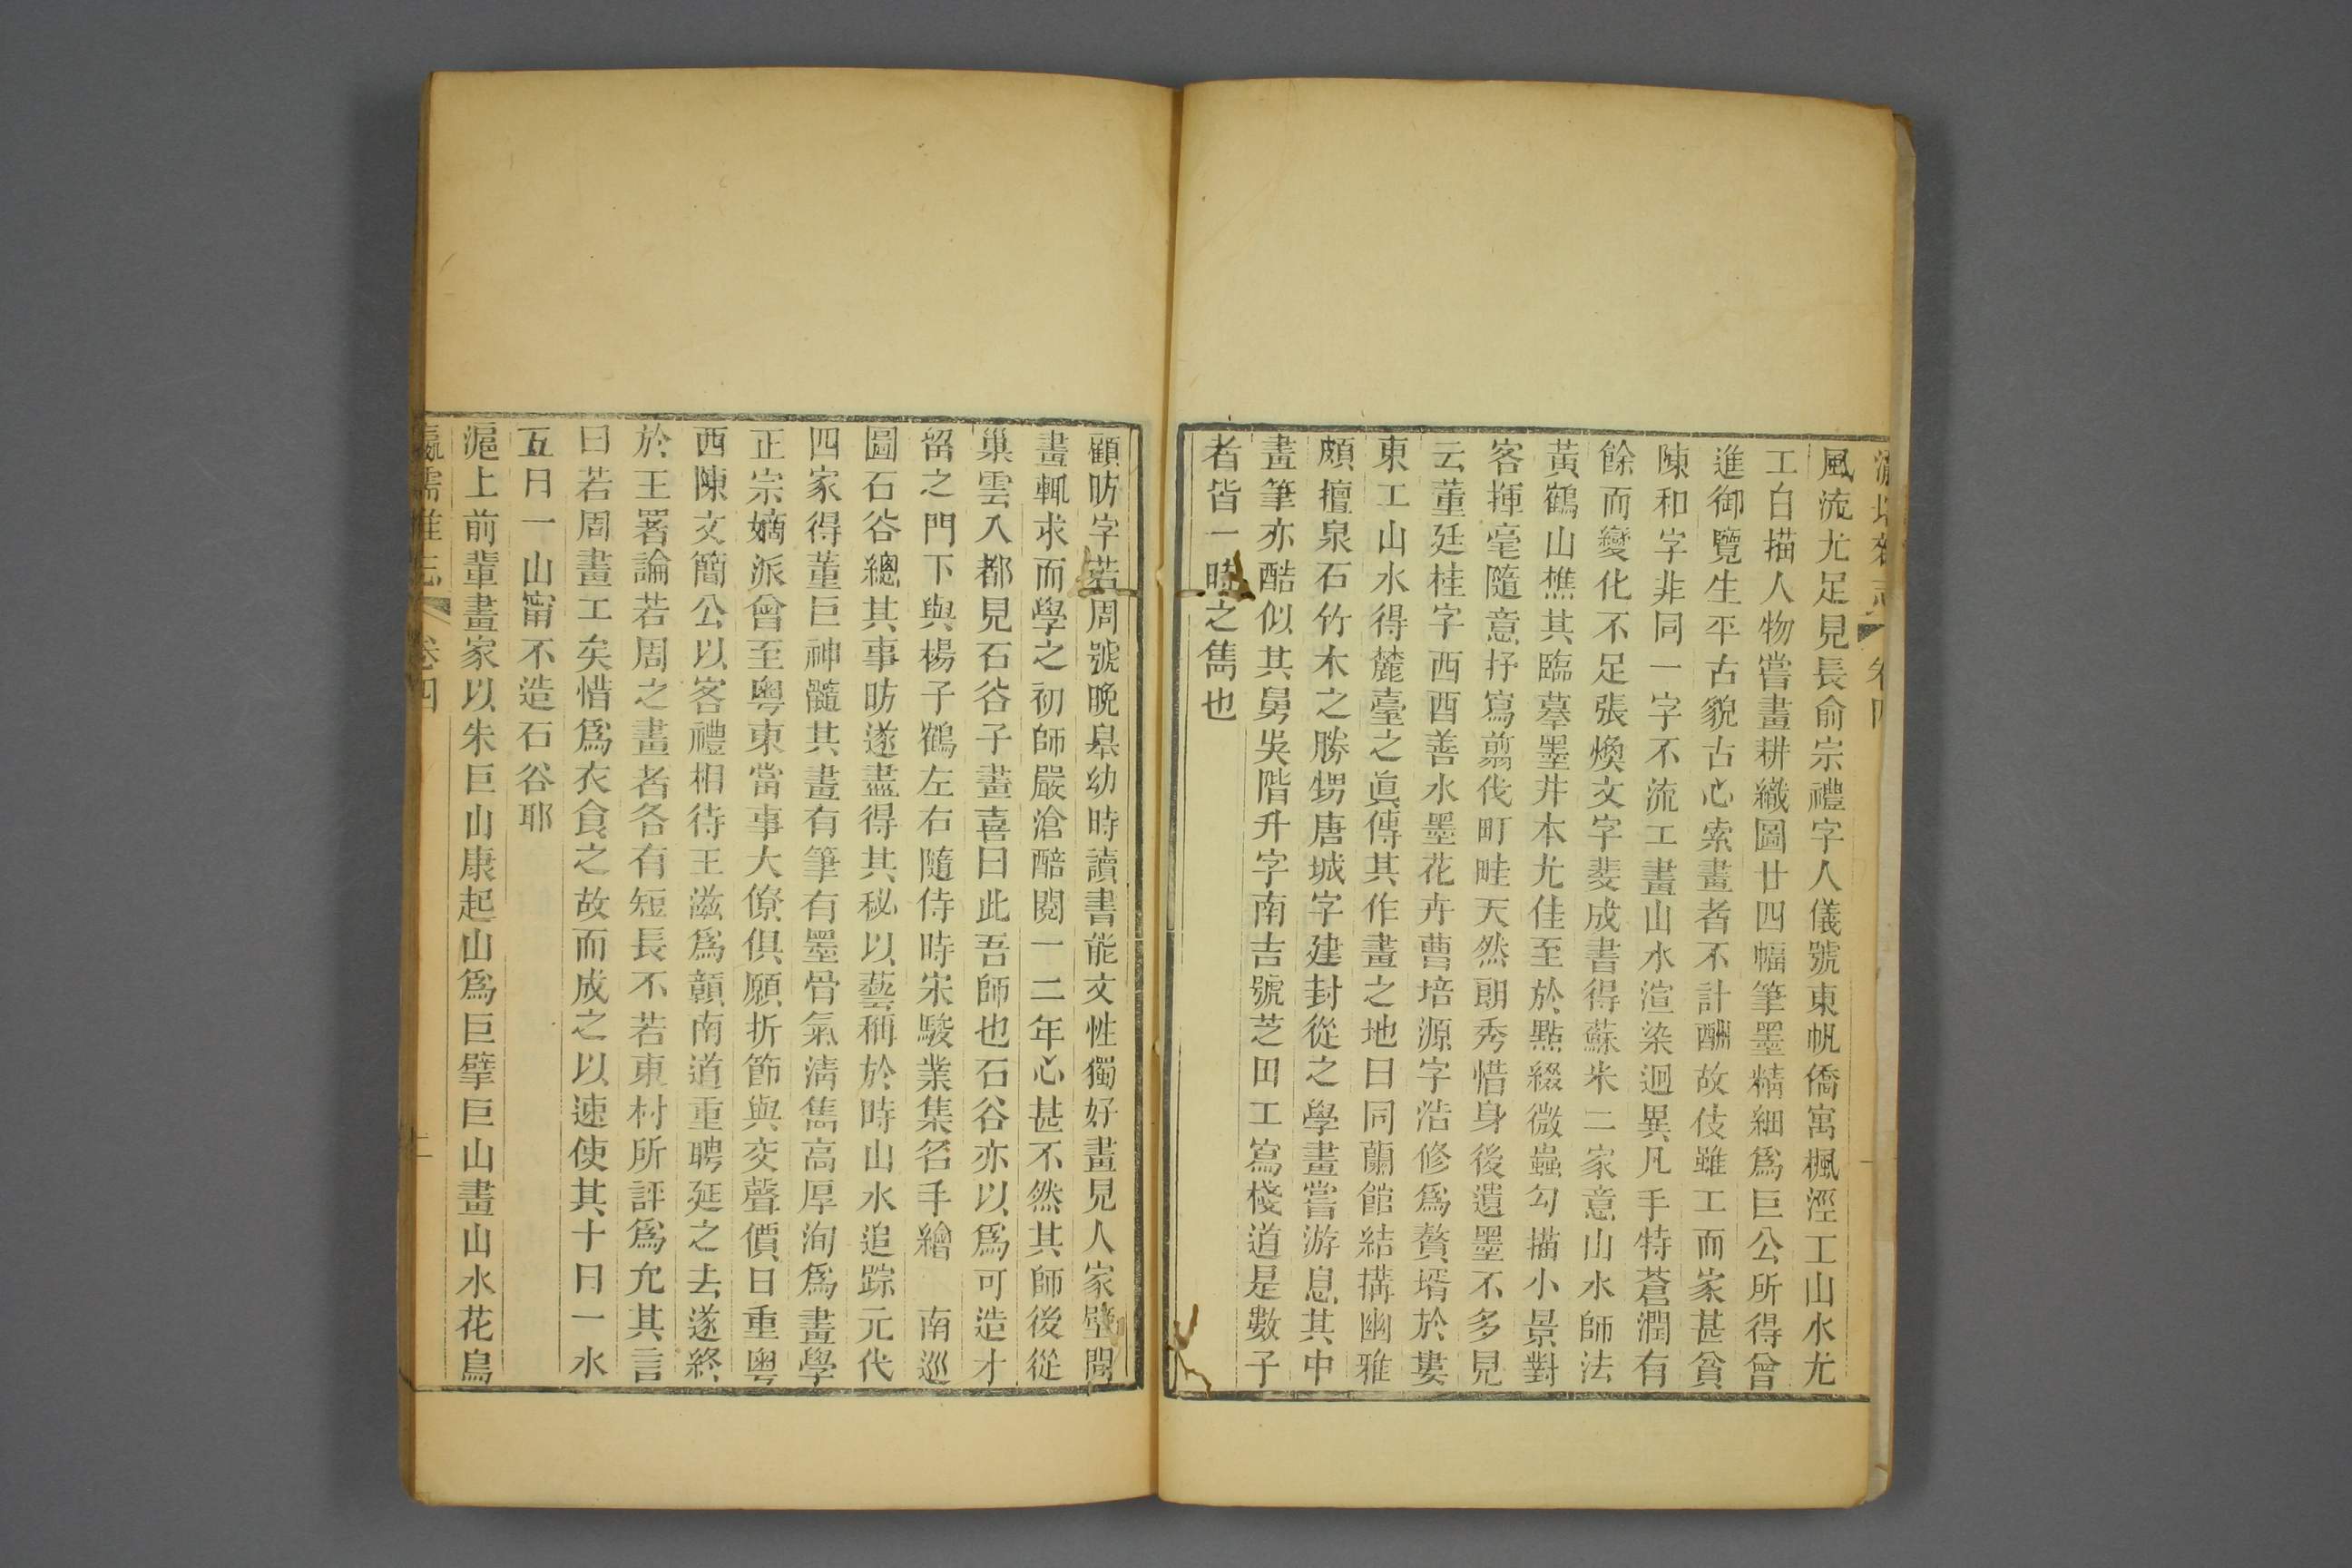 瀛壖雜志 卷四
風流尤足見長俞宗禮字人儀號東帆僑寓楓涇工山水尤
工白描人物嘗畫耕織圖廿四幅筆墨精細爲巨公所得曾
進御覽生平古貌古心索畫者不計酬故伎雖工而家甚貧
陳和字非同一字不流工畫山水渲染迥異凡手特蒼潤有
餘而變化不足張煥文字斐成書得蘇米二家意山水師法
黃鶴山樵其臨摹墨井本尤佳至於點綴微蟲勾描小景對
客揮毫隨意抒寫翦伐町畦天然朗秀惜身後遺墨不多見
云董廷桂字西酉善水墨花卉曹培源字浩修爲贅壻於婁
東工山水得麓臺之眞傳其作畫之地曰同蘭館結搆幽雅
頗擅泉石竹木之勝甥唐城字建封從之學畫嘗游息其中
畫筆亦酷似其舅吳階升字南吉號芝田工寫棧道是數子
者皆一時之雋也
顧昉字若周號晚臯幼時讀書能文性獨好畫見人家壁間
畫輒求而學之初師嚴滄醅閱一二年心甚不然其師後從
巢雲入都見石谷子畫喜曰此吾師也石谷亦以爲可造才
留之門下與楊子鶴左右隨侍時宋駿業集名手繪 南巡
圖石谷總其事昉遂盡得其秘以藝稱於時山水追踪元代
四家得董巨神髓其畫有筆有墨骨氣淸雋高厚洵爲畫學
正宗嫡派曾至粵東當事大僚俱願折節與交聲價日重粵
西陳文簡公以客禮相待王滋爲贛南道重聘延之去遂終
於王署論若周之畫者各有短長不若東村所評爲允其言
曰若周畫工矣惜爲衣食之故而成之以速使其十日一水
五日一山甯不造石谷耶
滬上前輩畫家以朱巨山康起山爲巨擘巨山畫山水花鳥
瀛壖雜志 卷四